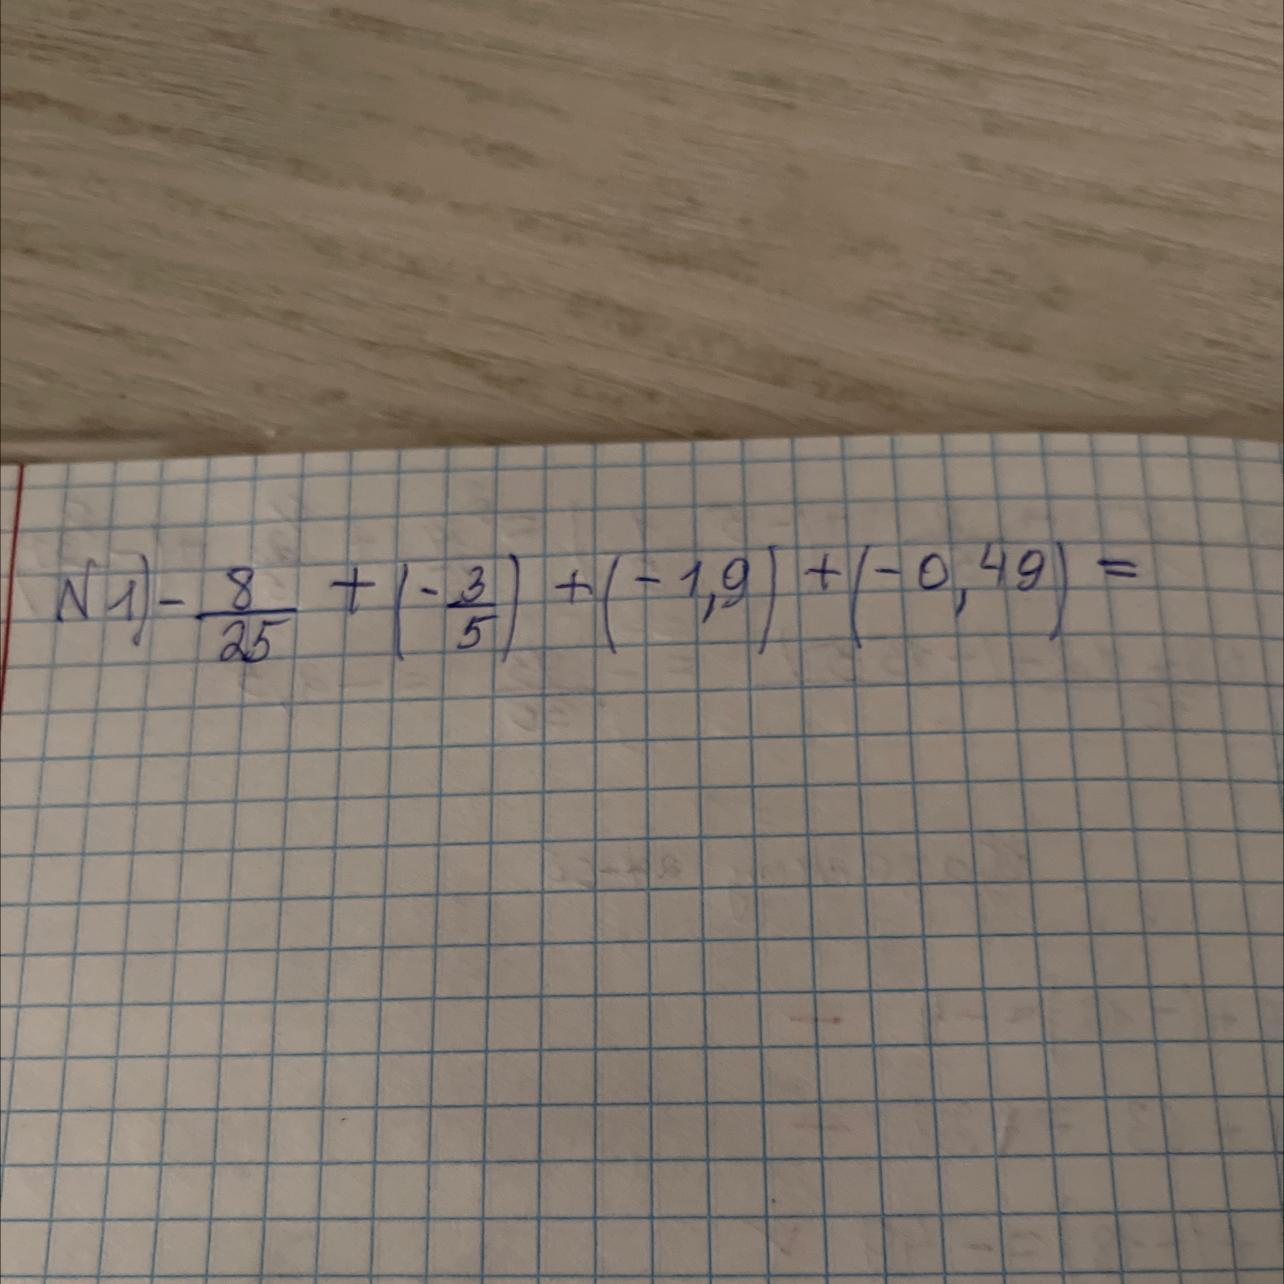 N1) - 8/25 + (- 3/5) + (- 1,9) + (- 0,49) =